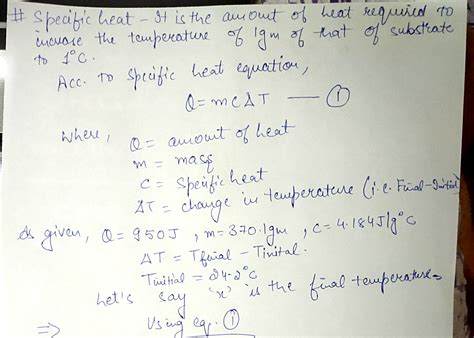 # Specific heat - It is the amount of heat required to
increase the temperature of 1gm of that of substrate
to 1°C.
Acc. To Specific heat equation,
Q = mCΔT — ①
Where, Q = amount of heat
m = mass
C = Specific heat
ΔT = change in temperature (i.e. Final-Initial)
As given, Q = 950J, m = 370.1gm, C = 4.184J/g°C
ΔT = Tfinal - Tinital.
Tinitial = 24.2°C
Let's say 'x' is the final temperature
⇒ Using eq. ①